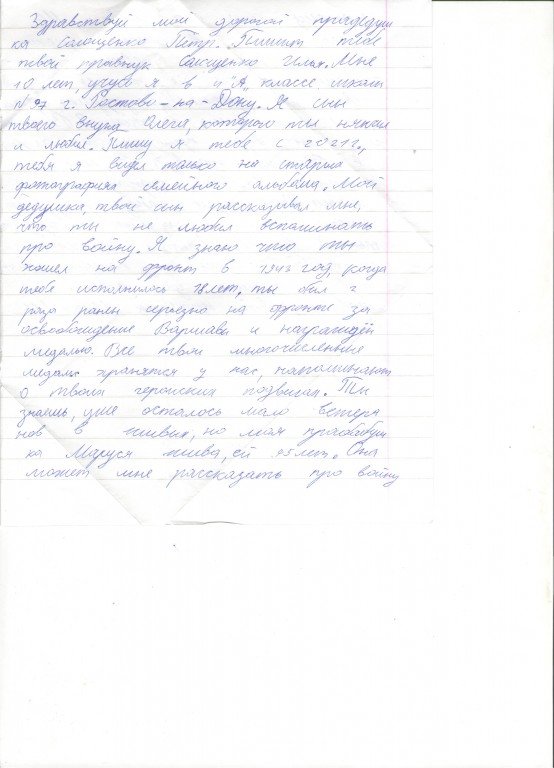 Здравствуй мой дорогой прадедуш
ка Солощенко Петр. Пишет тебе
твой правнук Солощенко Илья. Мне
10 лет, учусь я в 4 "А" классе школы
№97 г. Ростова-на-Дону. Я сын
твоего внука Олега, которого ты нянчил
и любил. Пишу я тебе с 2021г.,
тебя я видел только на старых
фотографиях семейного альбома. Мой
дедушка, твой сын рассказывал мне,
что ты не любил вспоминать
про войну. Я знаю что ты
пошел на фронт в 1943 год, когда
тебе исполнилось 18 лет, ты был 2
раза ранен серьезно на фронте за
освобождение Варшавы и награждён
медалью. Все твои многочисленные
медали хранятся у нас, напоминают
о твоих геройских подвигах. Ты
знаешь, уже осталось мало ветера
нов в живых, но моя прабабуш
ка Маруся жива, ей 95 лет. Она
может мне рассказать про войну